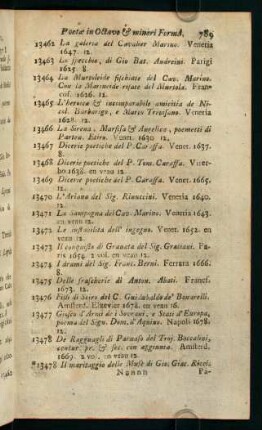 Poetæ in Octavo & minori Formâ. 789
13462 La galeria del Cavalier Marino. Venetia
1647. 12.
13463 Lo specchio, di Gio Bat. Andreini. Parigi
1625. 8.
13464 La Murtoleide fischiate del Cav. Marino.
Con la Marineide risate del Murtola. Fran-
cof. 1626. 12.
13465 L'heroica & incomparabile amicitia de Ni-
col. Barbarigo, e Marco Trevisano. Venetia
1628. 12.
13466 La Sirena, Marfisa & Angelica, poemetti di
Partino Etiro. Venet. 1630. 12.
13467 Dicerie poetiche del P. Caraffa. Venet.
1637. 8.
13468 Dicerie poetiche del P. Tom. Caraffa. Vinet-
bo. 1638. en veau 12.
13469 Dicerie poetiche del P. Caraffa. Venet. 1665.
12.
13470 L'Ariana del Sig. Rinuccini. Venetia 1640.
12.
13471 La Sampogna del Cav. Marino. Venetia 1643.
en veau 12.
13472 Le instabilità dell' ingegno. Venet. 1652.
en veau 12.
13473 Il conquisto di Granata del Sig. Gratiani. Pa-
ris 1654. 2 vol. en veau 12.
13474 I drami del Sig. Franc. Berni. Ferrara 1666.
8.
13475 Delle frascherie di Anton. Abati. Francf.
1673. 12.
13476 Filli di Sciro del C. Guidubaldo de' Bonarelli.
Amsterd. Elzevier 1678. en veau 16.
13477 Giusto d'Armi de i Sovrani, e Stati d'Europa,
poema del Sign. Dom. d'Aquino. Napoli 1678.
12.
13478 De Ragguagli di Parnaso del Troj. Boccalini,
centur. pr. & sec. con aggiunta. Amsterd.
1669. 2 vol. en veau 12.
*13478 Il maritaggio delle Muse di Gio. Giac. Ricci.
Nnnnn Pa-